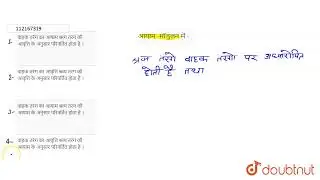 112167319
आयाम-मॉडुलन में -
1- वाहक तरंग का आयाम श्रव्य तरंग की
आवृत्ति के अनुसार परिवर्तित होता है ।
2- वाहक तरंग का आयाम श्रव्य तरंग की
आयाम के अनुसार परिवर्तित होता है ।
3- वाहक तरंग का आवृत्ति श्रव्य तरंग की
आयाम के अनुसार परिवर्तित होता है ।
4- वाहक तरंग का आवृत्ति श्रव्य तरंग की
आयाम के अनुसार परिवर्तित होता है ।
श्रव्य तरंगो वाहक तरंगो पर अध्यारोपित
होती है तथा
doubtnut